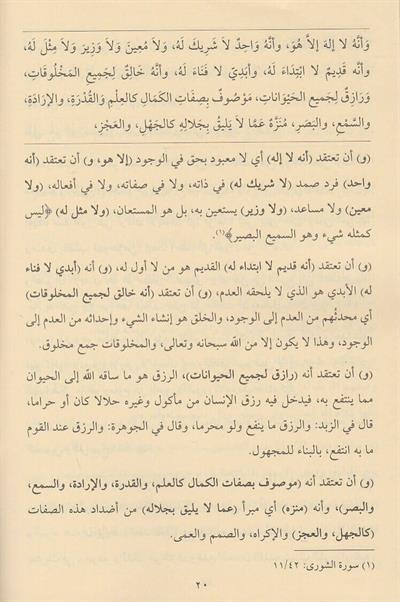 وَأَنَّهُ لا إلهَ إلاَّ هُوَ، وأنَّهُ وَاحِدٌ لاَ شَرِيكَ لَهُ، وَلاَ مُعِينَ وَلاَ وَزِيرَ وَلاَ مِثْلَ لَهُ،
وأنَّه قَدِيمٌ لا ابْتِدَاءَ لَهُ، وأبَدِيّ لا فَنَاءَ لَهُ، وأنَّهُ خَالِقٌ لِجَمِيعِ المَخْلُوقَاتِ،
وَرَازِقٌ لِجَميعِ الحَيْوَانَاتِ، مَوْصُوفٌ بِصِفَاتِ الكَمَالِ كالعِلْمِ والقُدْرَةِ، والإرَادَةِ،
والسَّمْعِ، والبَصَرِ، مُنَزَّهٌ عَمَّا لاَ يَلِيقُ بِجَلاَلِهِ كالجَهْلِ، والعَجْزِ،
(و) أن تعتقد (أنه لا إله) أي لا معبود بحق في الوجود (إلا هو، و) أن تعتقد (أنه
واحد) فرد صمد (لا شريك له) في ذاته، ولا في صفاته، ولا في أفعاله، (ولا
معين) ولا مساعد، (ولا وزير) يستعين به، بل هو المستعان، (ولا مثل له) ﴿ليس
كمثله شيء وهو السميع البصير﴾(١).
(و) أن تعتقد (أنه قديم لا ابتداء له) القديم هو من لا أول له، (و) أنه (أبدي لا فناء
له) الأبدي هو الذي لا يلحقه العدم، (و) أن تعتقد (أنه خالق لجميع المخلوقات)
أي محدثُهم من العدم إلى الوجود، والخلق هو إنشاء الشيء وإحداثه من العدم إلى
الوجود، وهذا لا يكون إلا من الله سبحانه وتعالى، والمخلوقات جمع مخلوق.
(و) أن تعتقد أنه (رازق لجميع الحيوانات)، الرزق هو ما ساقه الله إلى الحيوان
مما ينتفع به، فيدخل فيه رزق الإنسان من مأكول وغيره حلالا كان أو حراما،
قال في الزبد: والرزق ما ينفع ولو محرما، وقال في الجوهرة: والرزق عند القوم
ما به انتفع، بالبناء للمجهول.
(و) أن تعتقد أنه (موصوف بصفات الكمال كالعلم، والقدرة، والإرادة، والسمع،
والبصر)، وأنه (منزه) أي مبرأ (عما لا يليق بجلاله) من أضداد هذه الصفات
(كالجهل، والعجز) والإكراه، والصمم والعمى.
(١) سورة الشورى: ١١/٤٢
٢٠